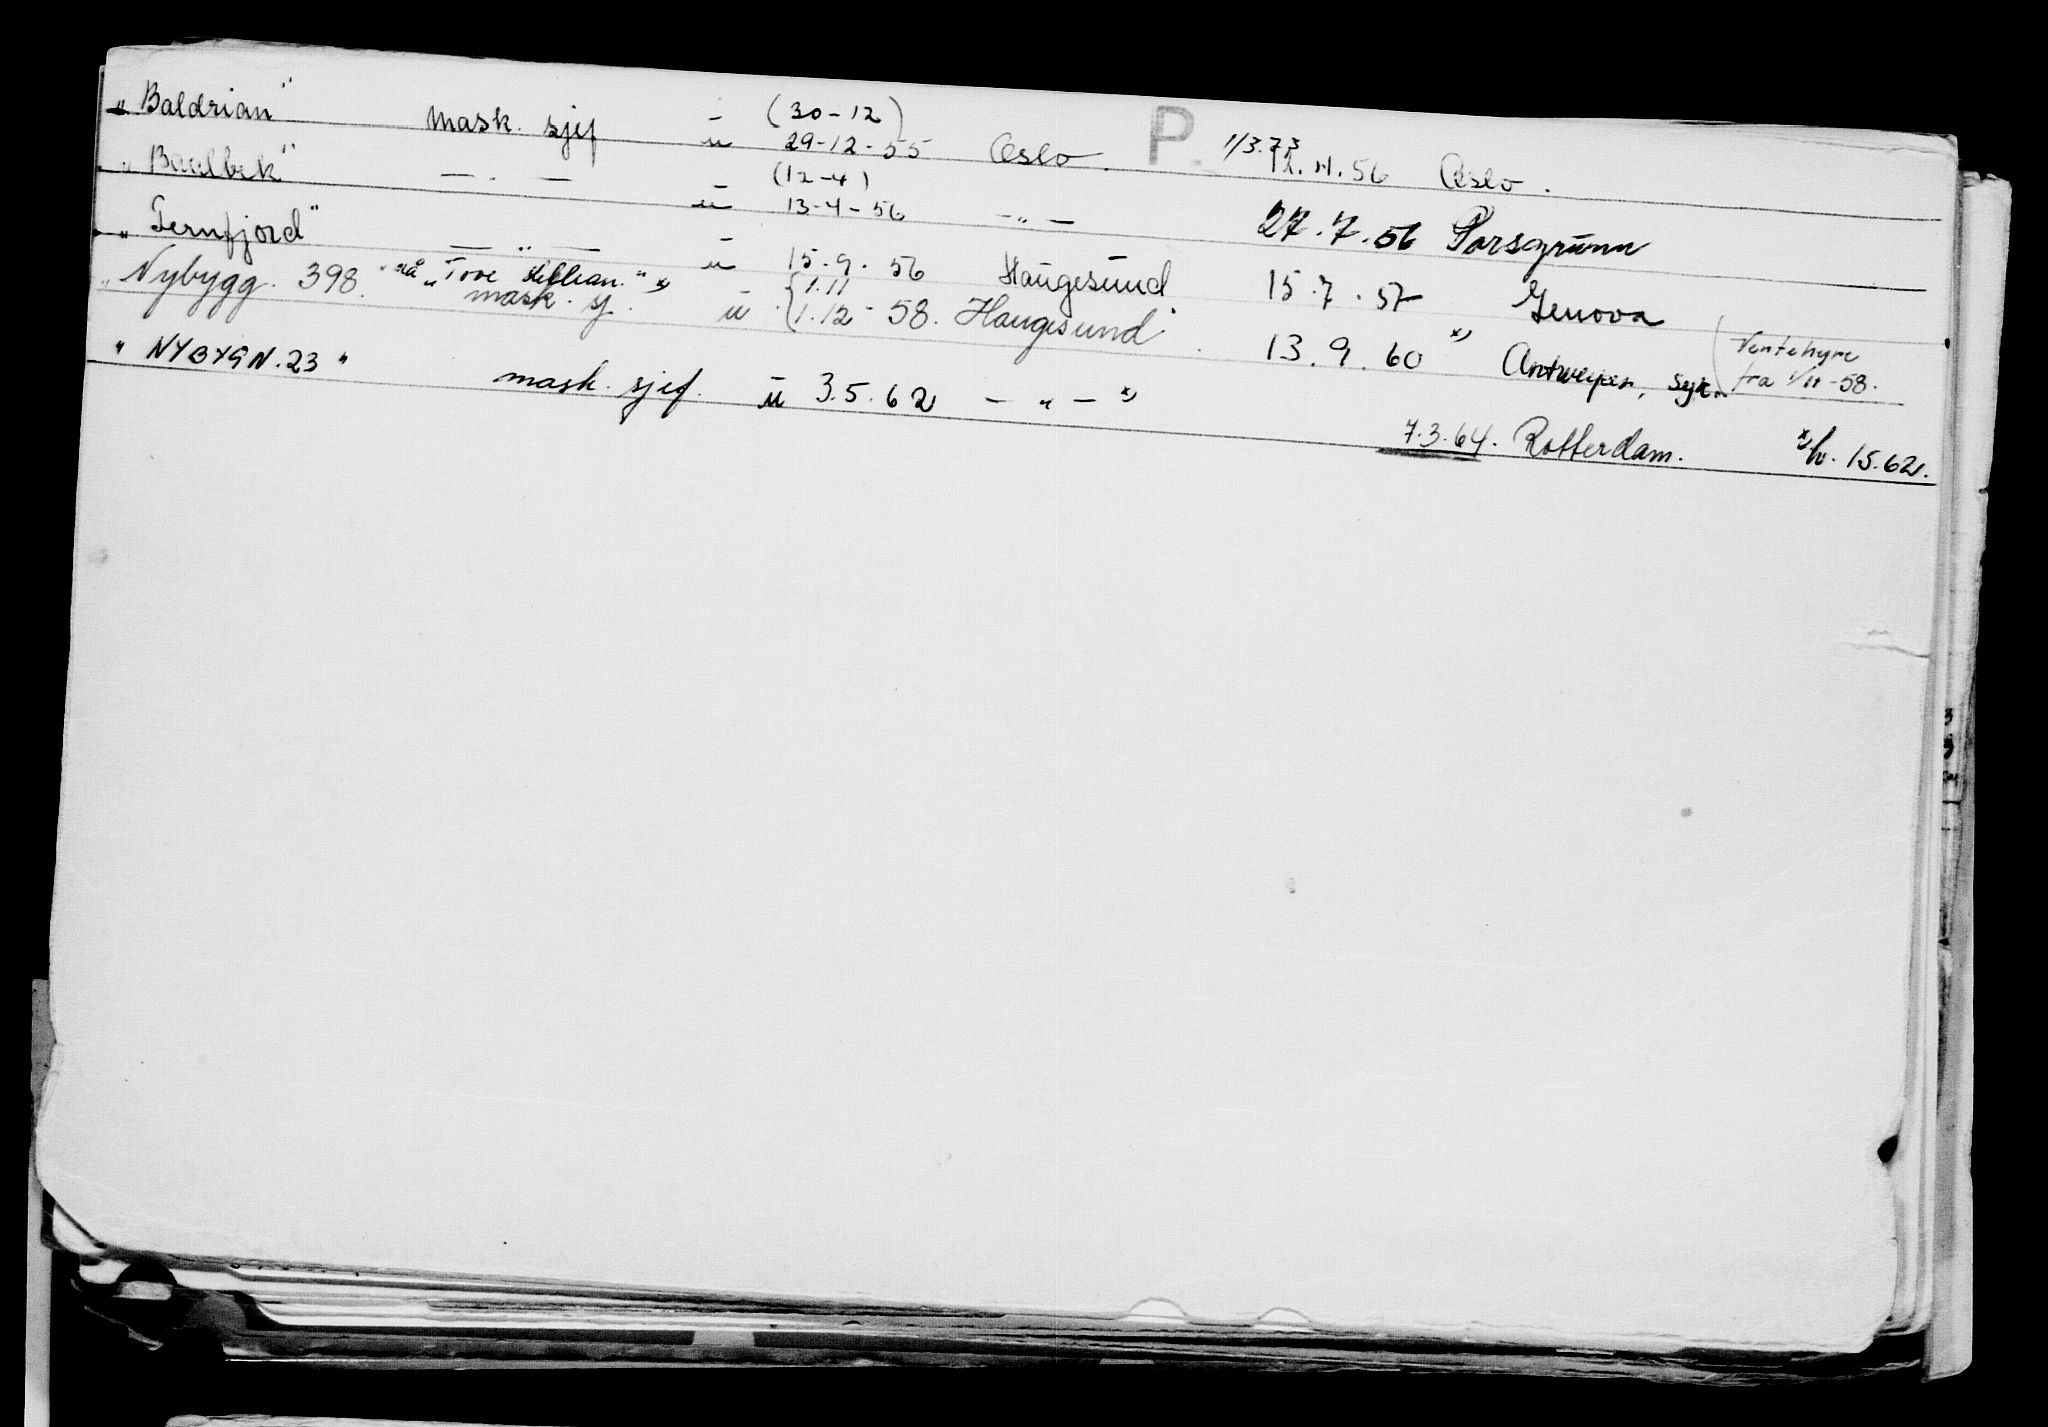 „Baldrian" mask. sjef ü (30-12) 29-12-55 Oslo. P. 1/3.73 56 Oslo.
„Baalbek" — . — ü (12-4) 13-4-56 — „ — 27.7.56 Porsgrunn
„Ternfjord" — „ — ü 15.9.56 Haugesund 15.7.57 Genova
„Nybygg. 398." nå „Tove Lillian." x) mask. sj. ü {1.11 1.12-58. Haugesund. 13.9.60 x) Antwerpen, syk. (Ventehyre fra 1/11-58.
„NYBYGN.23" mask. sjef. ü 3.5.62 — „ — x) 7.3.64. Rotterdam. x) 1.5.62.